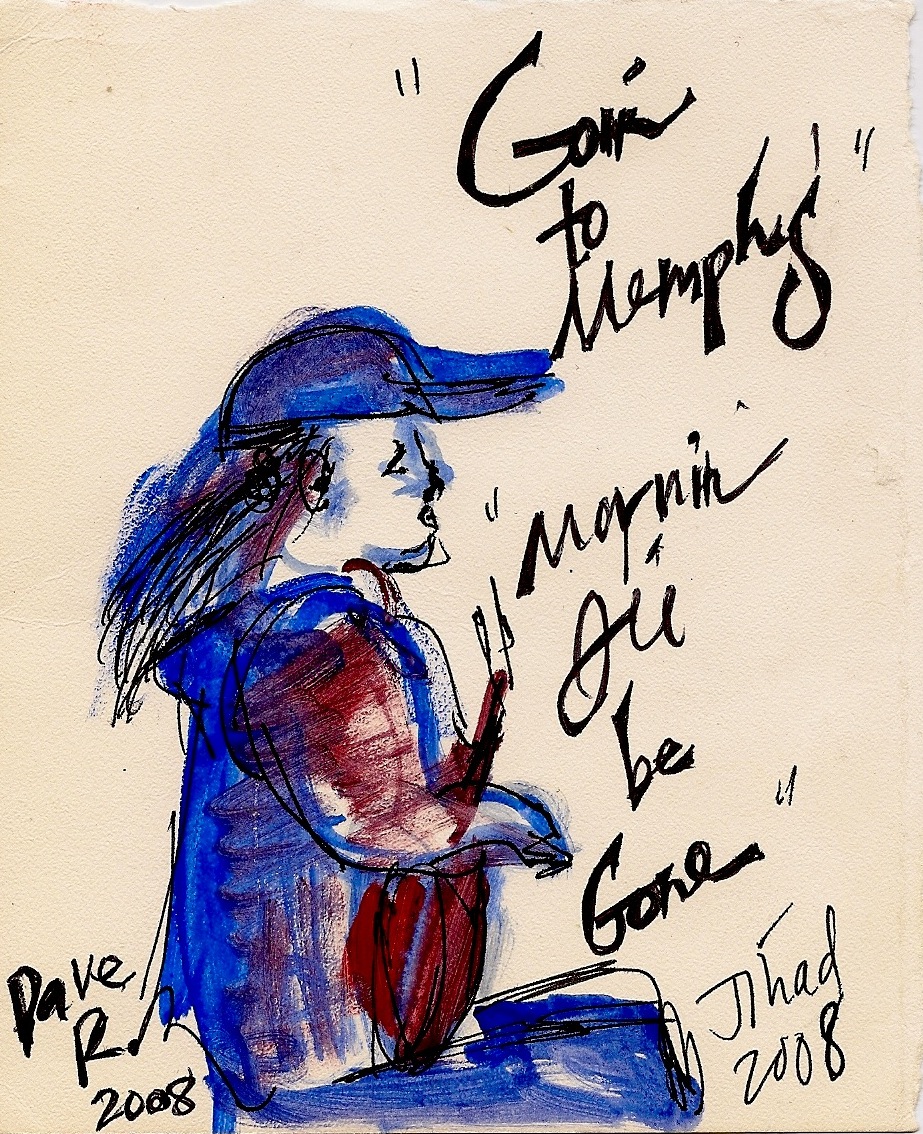 "Goin
to
Memphis"
"Mornin
I'll
be
Gone"
Dave
R.
2008
Jihad
2008